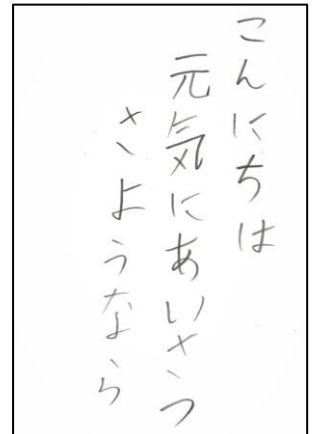 こんにちは
元気にあいさつ
さようなら